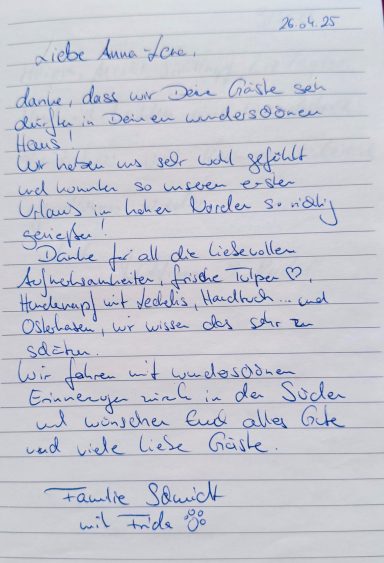 26.04.25
Liebe Anna-Lena,
danke, dass wir Deine Gäste sein
durften in Deinem wunderschönen
Haus!
Wir haben uns sehr wohl gefühlt
und konnten so unseren ersten
Urlaub im hohen Norden so richtig
genießen!
Danke für all die liebevollen
Aufmerksamkeiten, frische Tulpen ♡,
Hundenapf mit Leckerlis, Handtuch... und
Osterhasen, wir wissen das sehr zu
schätzen.
Wir fahren mit wunderschönen
Erinnerungen zurück in den Süden
und wünschen Euch alles Gute
und viele liebe Gäste.
Familie Schmidt
mit Frida